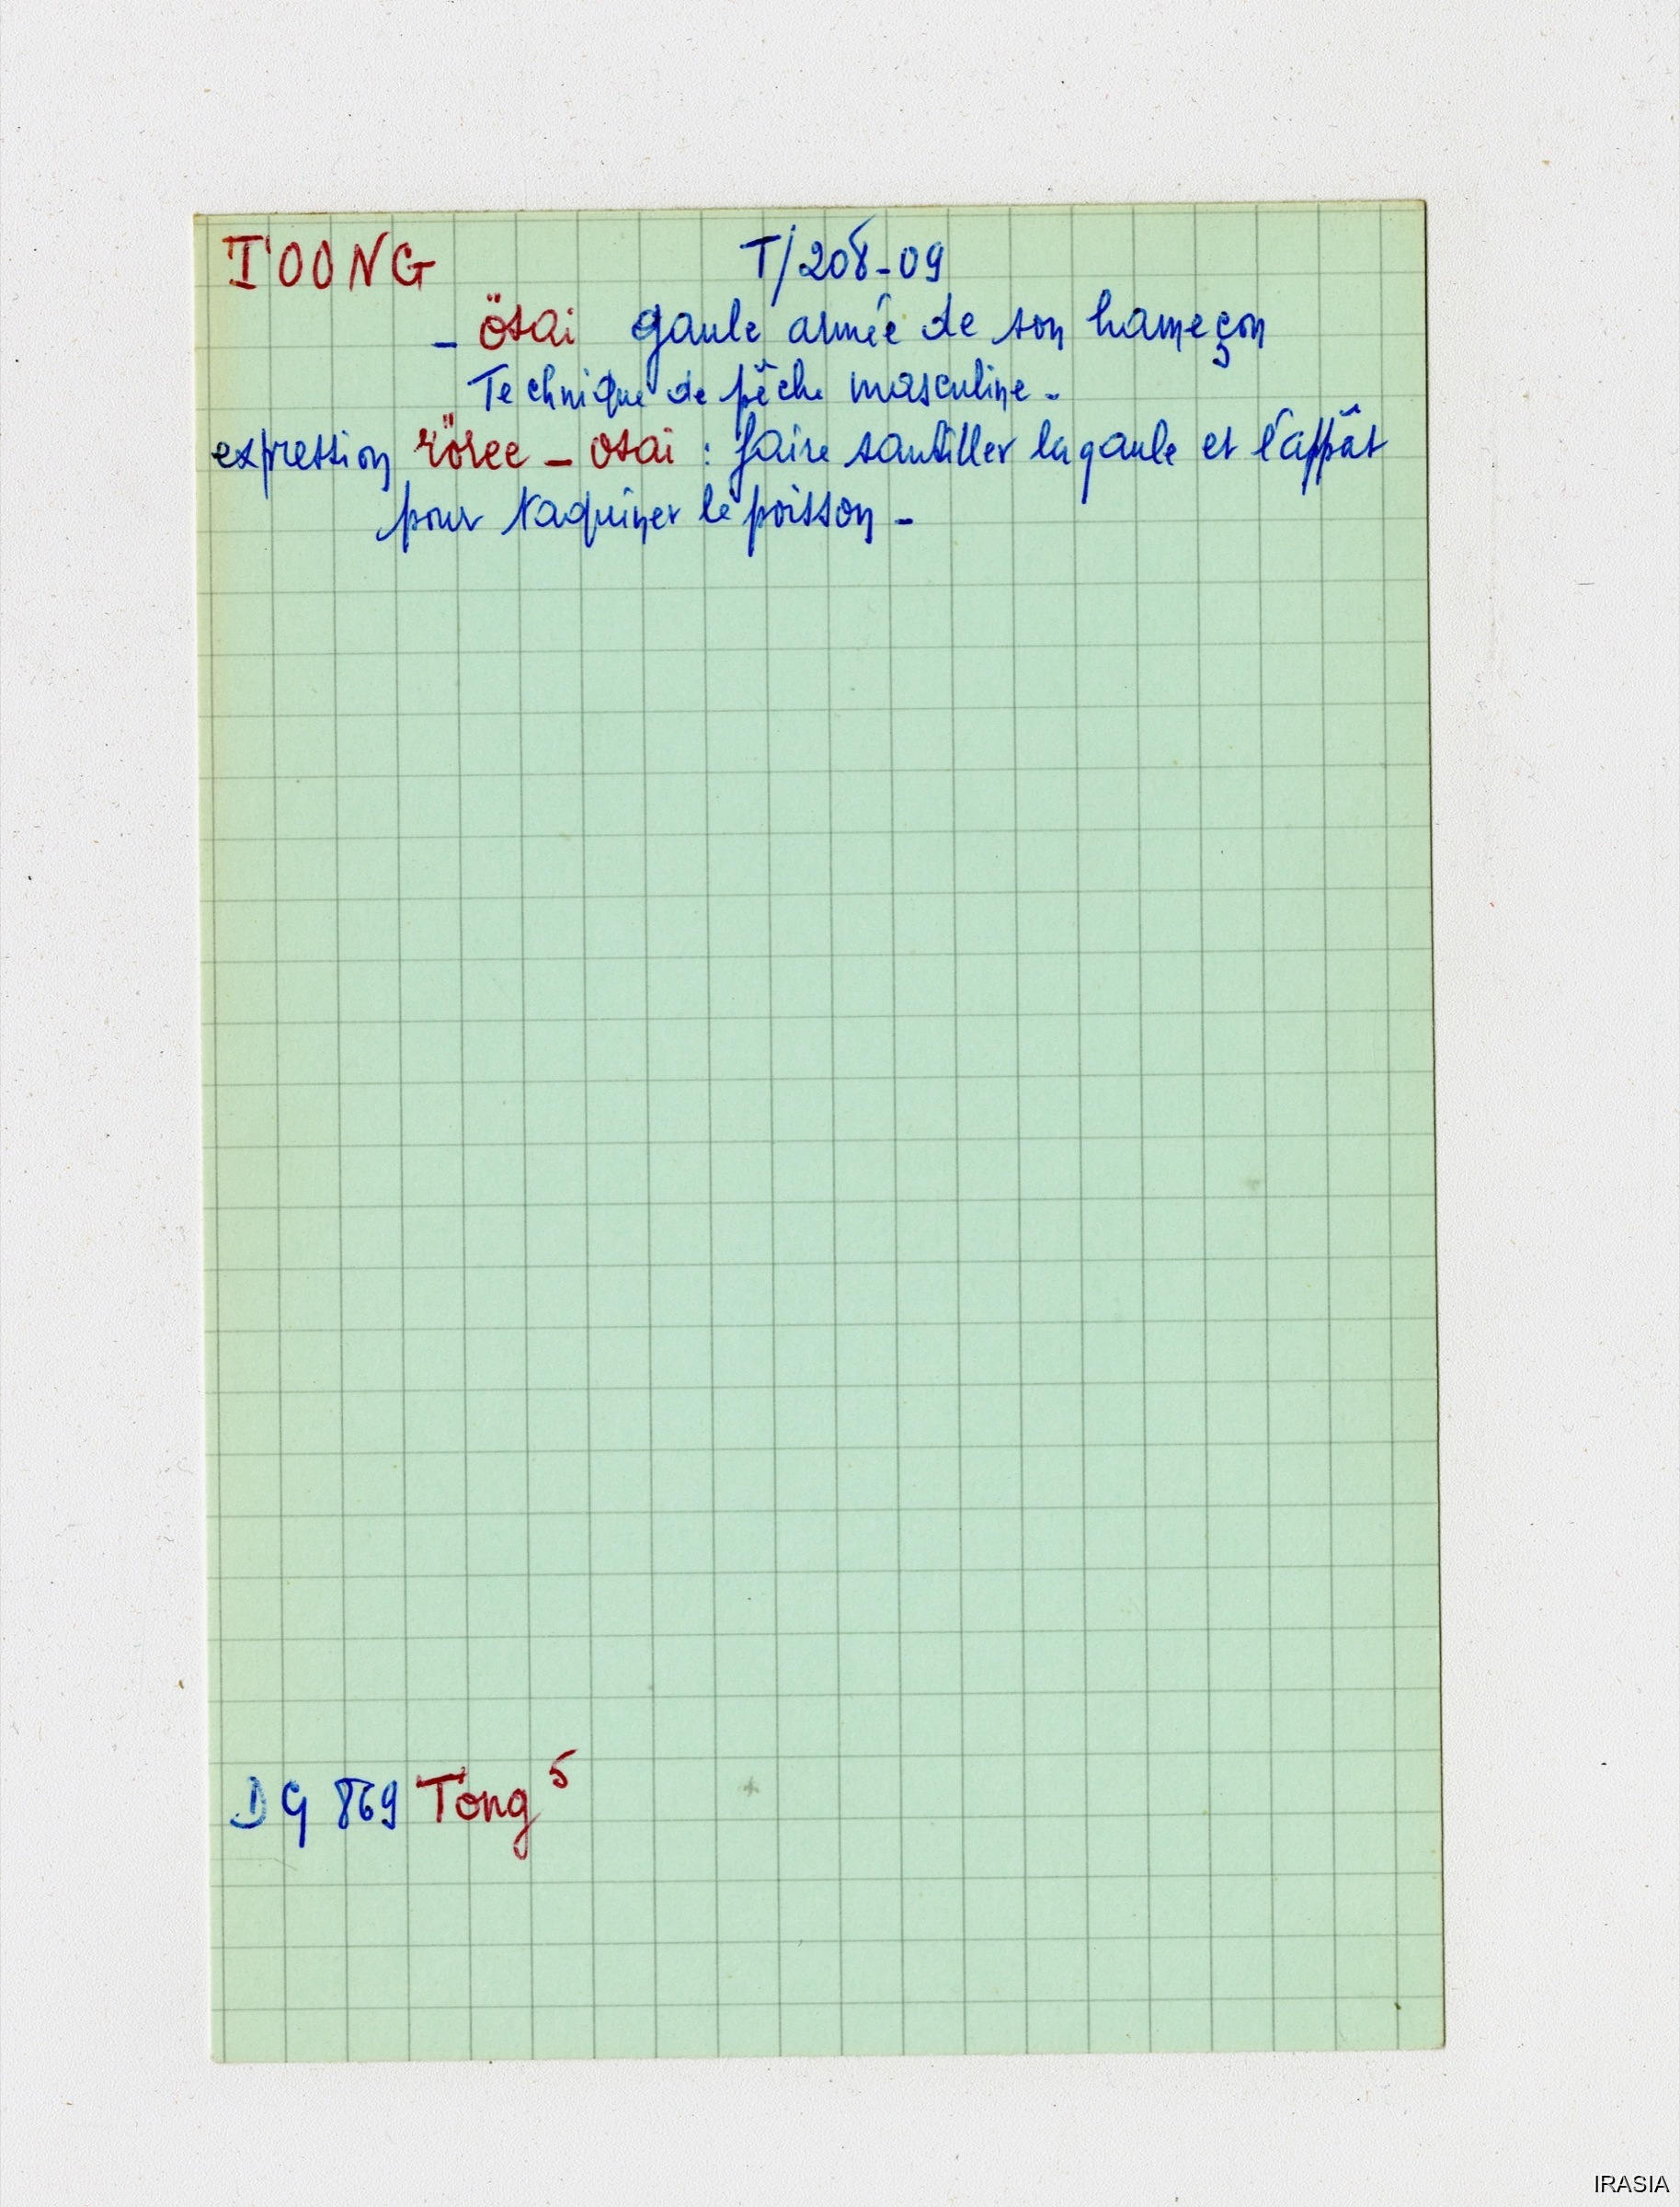 T'OONG T/208-09
- ösai gaule armée de son hameçon
Technique de pêche masculine -
expression röree - osai : faire sautiller la gaule et l'appât
pour taquiner le poisson -
DG 869 Tong 5
IRASIA